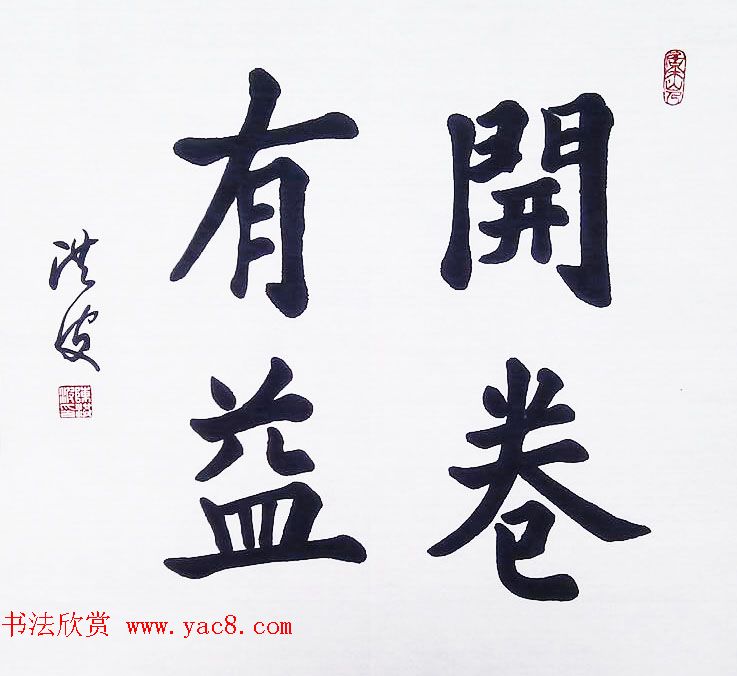 開卷
有益
洪波
书法欣赏 www.yac8.com